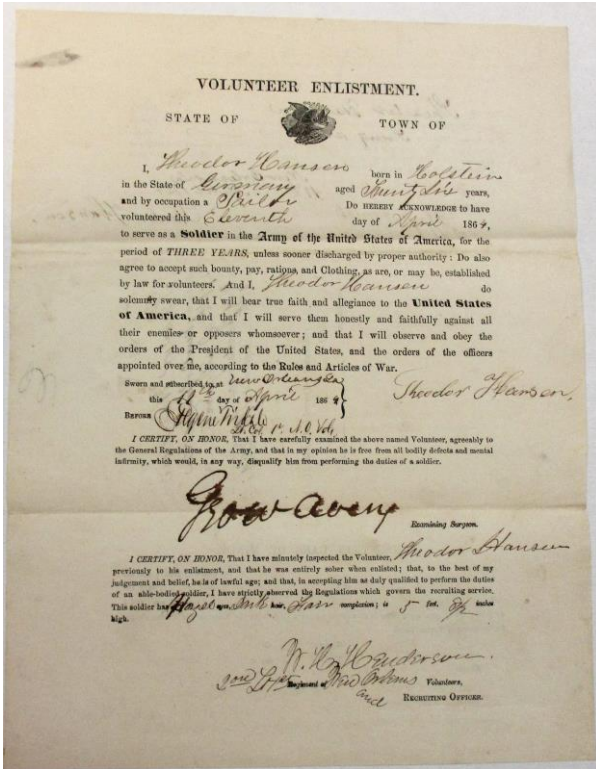 VOLUNTEER ENLISTMENT.
STATE OF TOWN OF
I, Theodor Hansen born in Holstein
in the State of Germany aged Twenty Six years,
and by occupation a Sailor Do HEREBY ACKNOWLEDGE to have
volunteered this Eleventh day of April 1864,
to serve as a Soldier in the Army of the United States of America, for the
period of THREE YEARS, unless sooner discharged by proper authority: Do also
agree to accept such bounty, pay, rations, and Clothing, as are, or may be, established
by law for volunteers. And I, Theodor Hansen do
solemnly swear, that I will bear true faith and allegiance to the United States
of America, and that I will serve them honestly and faithfully against all
their enemies or opposers whomsoever; and that I will observe and obey the
orders of the President of the United States, and the orders of the officers
appointed over me, according to the Rules and Articles of War.
Sworn and subscribed to, at New Orleans La
this 11th day of April 1864
Theodor Hansen.
BEFORE
Lt. Col. 1st N.O. Vols
I CERTIFY, ON HONOR, That I have carefully examined the above named Volunteer, agreeably to
the General Regulations of the Army, and that in my opinion he is free from all bodily defects and mental
infirmity, which would, in any way, disqualify him from performing the duties of a soldier.
Geo W Avery
Examining Surgeon.
I CERTIFY, ON HONOR, That I have minutely inspected the Volunteer, Theodor Hansen
previously to his enlistment, and that he was entirely sober when enlisted; that, to the best of my
judgement and belief, he is of lawful age; and that, in accepting him as duly qualified to perform the duties
of an able-bodied soldier, I have strictly observed the Regulations which govern the recruiting service.
This soldier has Hazel eyes, Dark hair, Fair complexion; is 5 feet, 8½ inches
high.
W. H. Henderson.
2nd Lt 1st Regiment of New Orleans Volunteers,
and RECRUITING OFFICER.